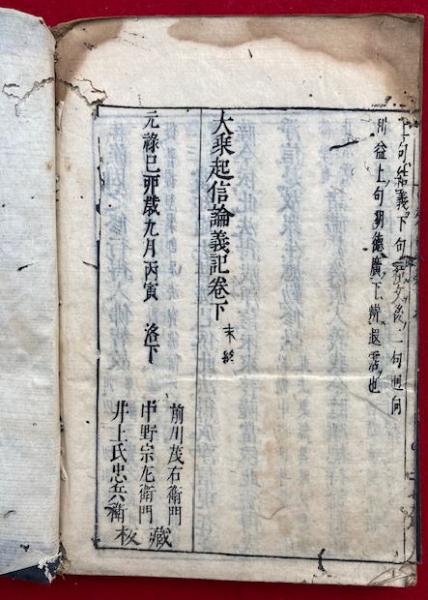 上句結義下句結文後二句迴向
所益上句明德廣下辨遐霑也
大乗起信論義記卷下 末終
元祿己卯歲九月丙寅 洛下
前川茂右衛門
中野宗左衛門
井上氏忠兵衛
藏板